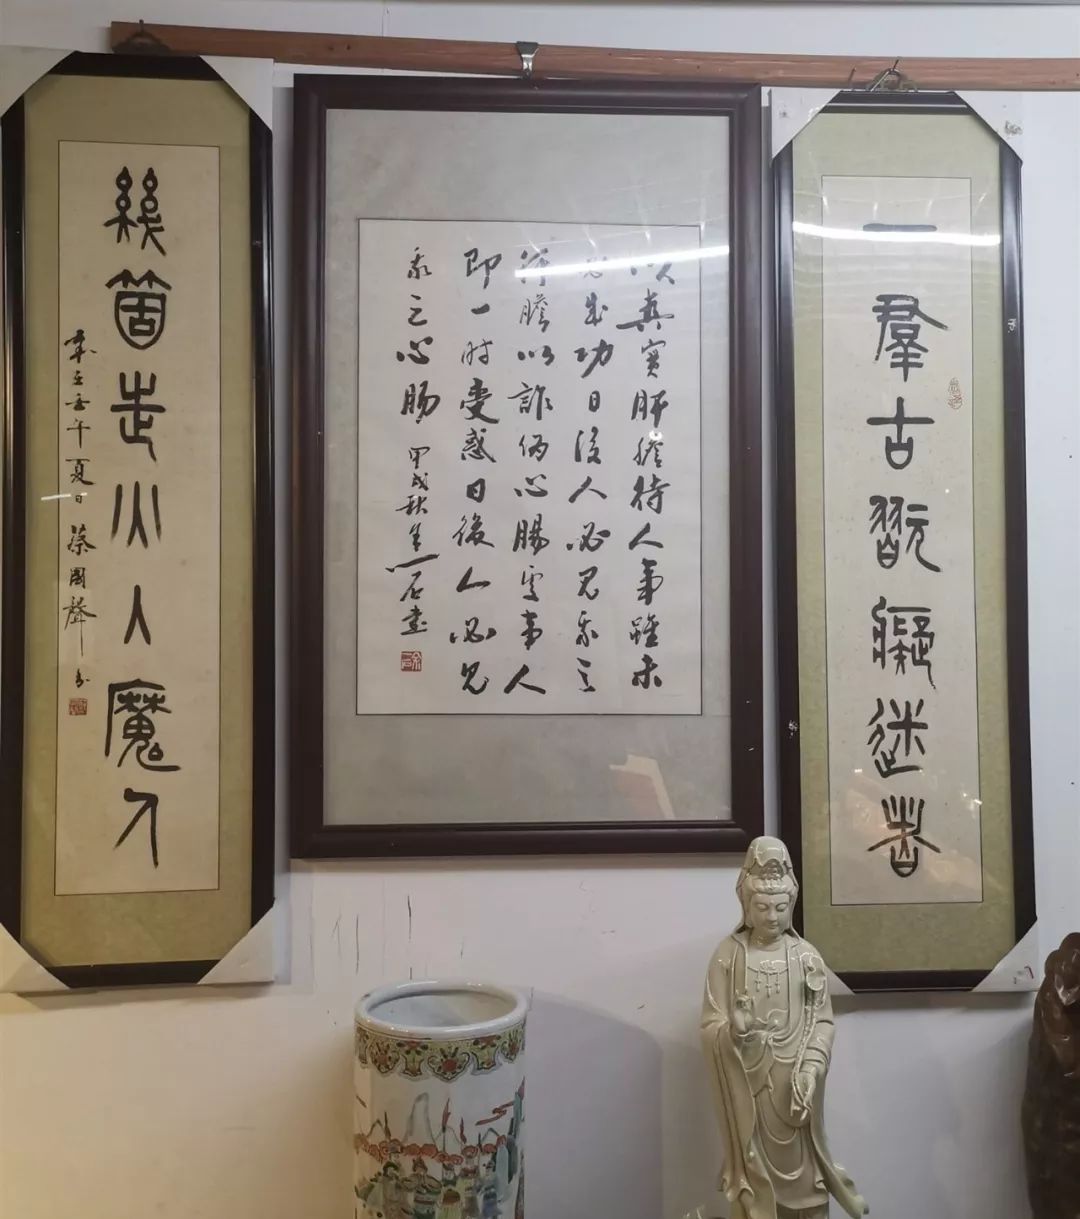 一群古翫癡迷者
以真實肝膽待人事雖未
必成功日後人必見我之
肝膽以詐偽心腸處事人
即一時受惑日後人必見
我之心腸 甲戌秋石書
幾箇走火入魔人
歲在壬午夏日蔡國聲書